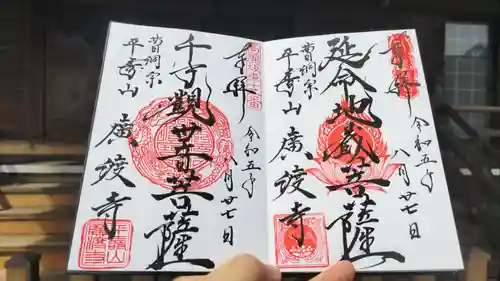 奉拝
令和五年
八月廿七日
延命地蔵菩薩
曹洞宗
平寿山
廣渡寺
奉拝
令和五年
八月廿七日
千手観世音菩薩
曹洞宗
平寿山
廣渡寺